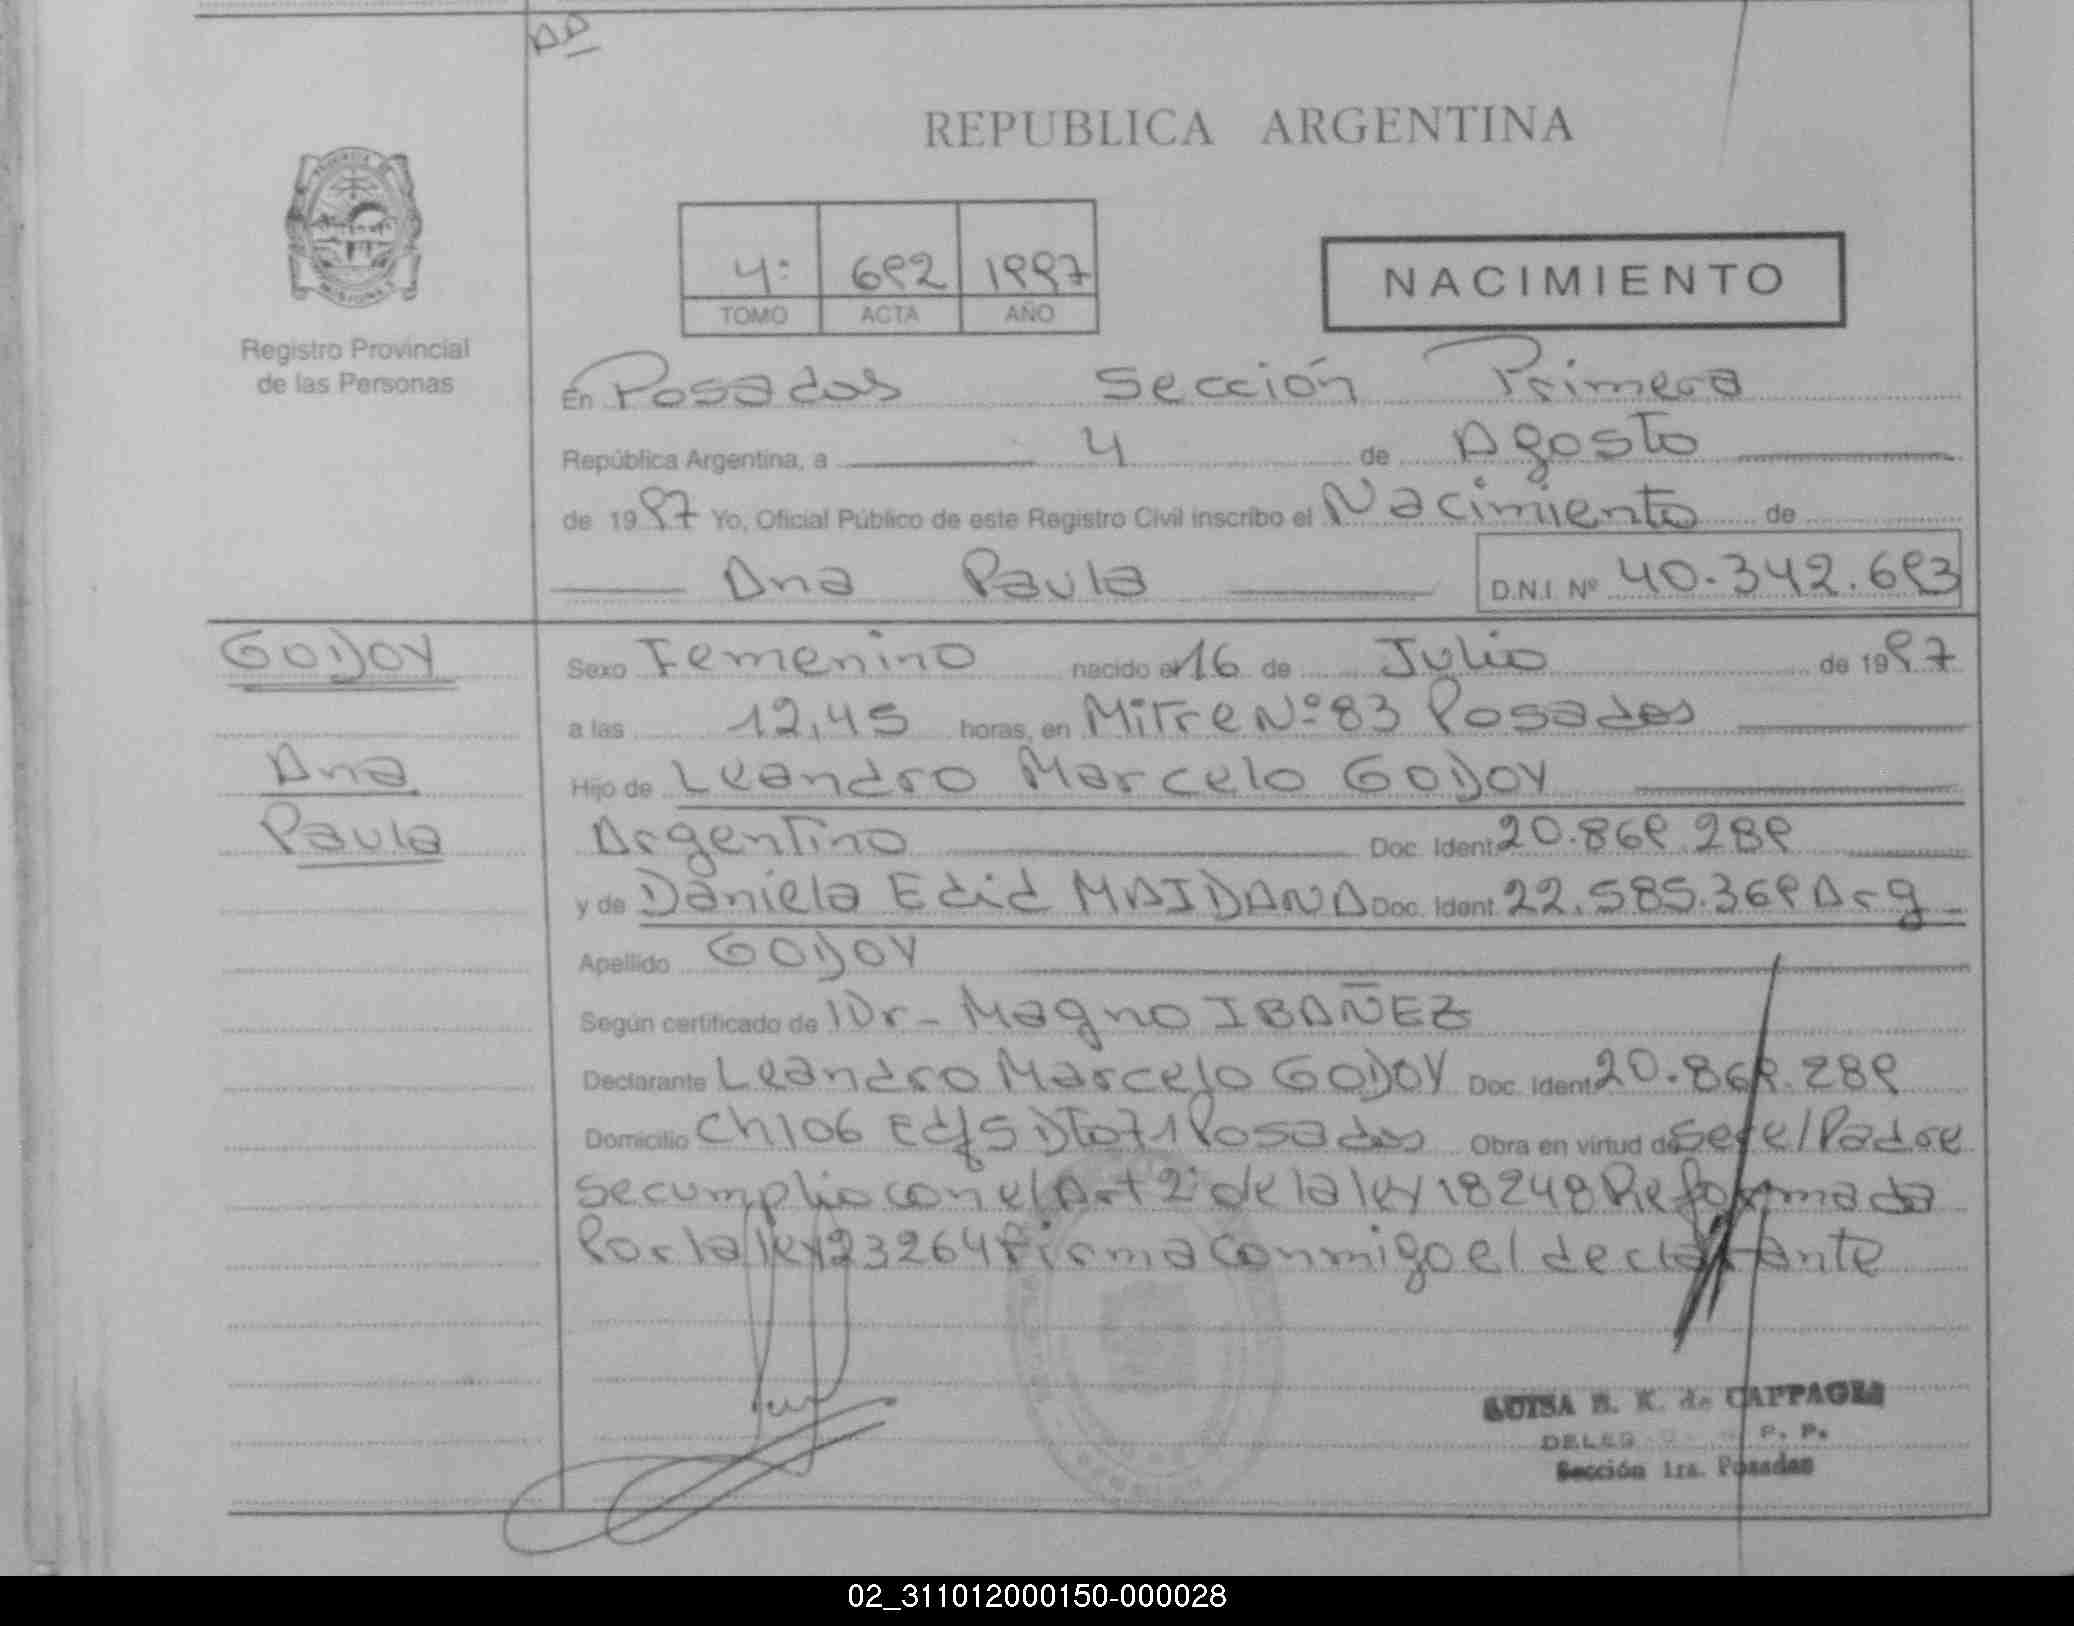 REPUBLICA ARGENTINA
4: 692 1997
TOMO ACTA AÑO
NACIMIENTO
Registro Provincial
de las Personas
En Posadas Sección Primera
República Argentina, a 4 de Agosto
de 1997 Yo, Oficial Público de este Registro Civil inscribo el Nacimiento de
Ana Paula D.N.I. Nº 40.342.693
GODOY
Ana
Paula
Sexo Femenino nacido el 16 de Julio de 1997
a las 12,45 horas, en Mitre Nº 83 Posadas
Hijo de Leandro Marcelo GODOY
Argentino Doc. Ident. 20.869.289
y de Daniela Edid MAIDANA Doc. Ident. 22.585.369 Arg
Apellido GODOY
Según certificado de Dr- Magno IBAÑEZ
Declarante Leandro Marcelo GODOY Doc. Ident. 20.869.289
Domicilio Ch 106 Edf 5 Dto 71 Posadas Obra en virtud de ser el Padre
se cumplio con el Art 2º de la ley 18248 Reformada
Por la ley 23264 firma conmigo el declarante
LUISA K. de
P. P.
Sección 1ra. Posadas
02_311012000150-000028